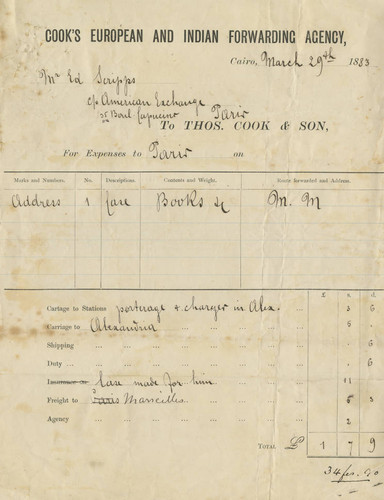 COOK'S EUROPEAN AND INDIAN FORWARDING AGENCY,
Cairo, March 29th 1883
Mr Ed Scripps
c/o American Exchange
35 Boul. Capucine Paris
To THOS. COOK & SON,
For Expenses to Paris on
Marks and Numbers. No. Descriptions. Contents and Weight. Route forwarded and Address.
Address 1 Case Books M. M
£
Cartage to Stations porterage & charges in Alex. 3 6
Carriage to Alexandria 5 .
Shipping . 6
Duty . 6
Insurance on Case made for him 11
Freight to Paris Marseilles 5 3
Agency 2
TOTAL £ 1 7 9